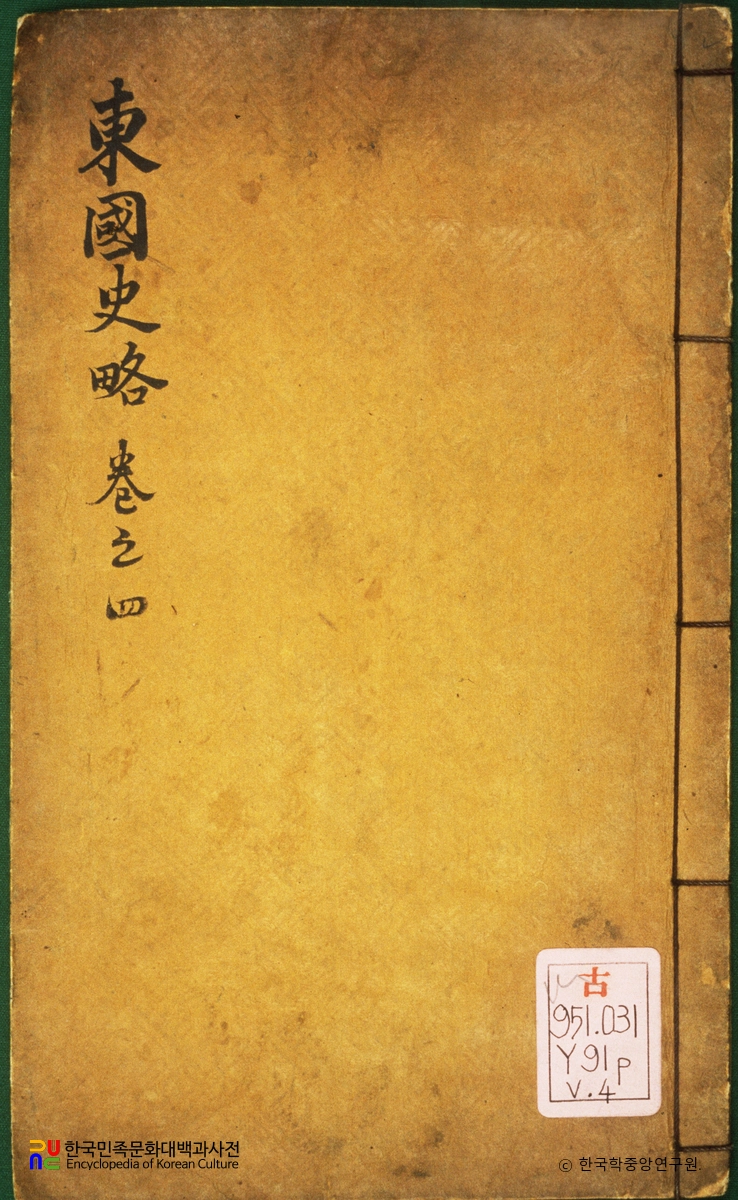 東國史略 卷之四
古
951.031
Y91p
V.4
한국민족문화대백과사전
Encyclopedia of Korean Culture
© 한국학중앙연구원.